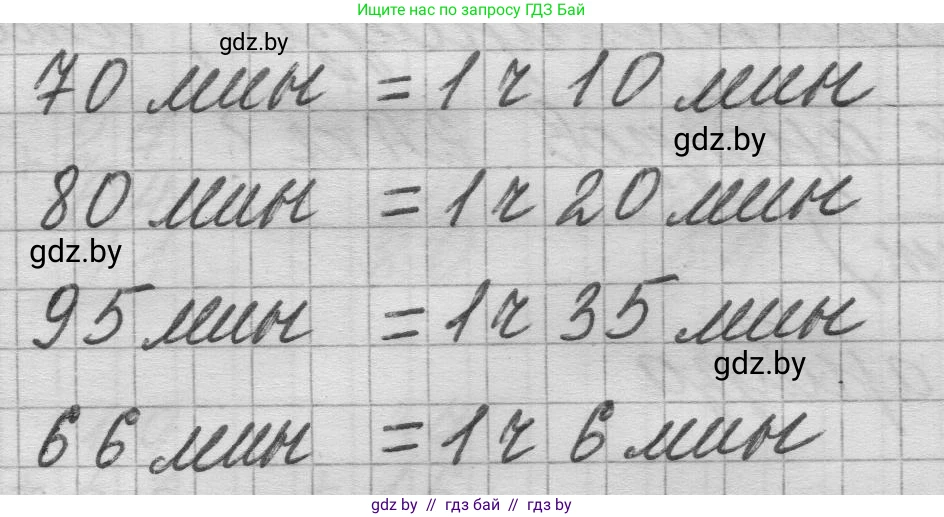 Ищите нас по запросу ГДЗ Бай
gdz.by
70 мин = 1 ч 10 мин
gdz.by
80 мин = 1 ч 20 мин
gdz.by
95 мин = 1 ч 35 мин
gdz.by
66 мин = 1 ч 6 мин
gdz by // гдз бай // гдз by